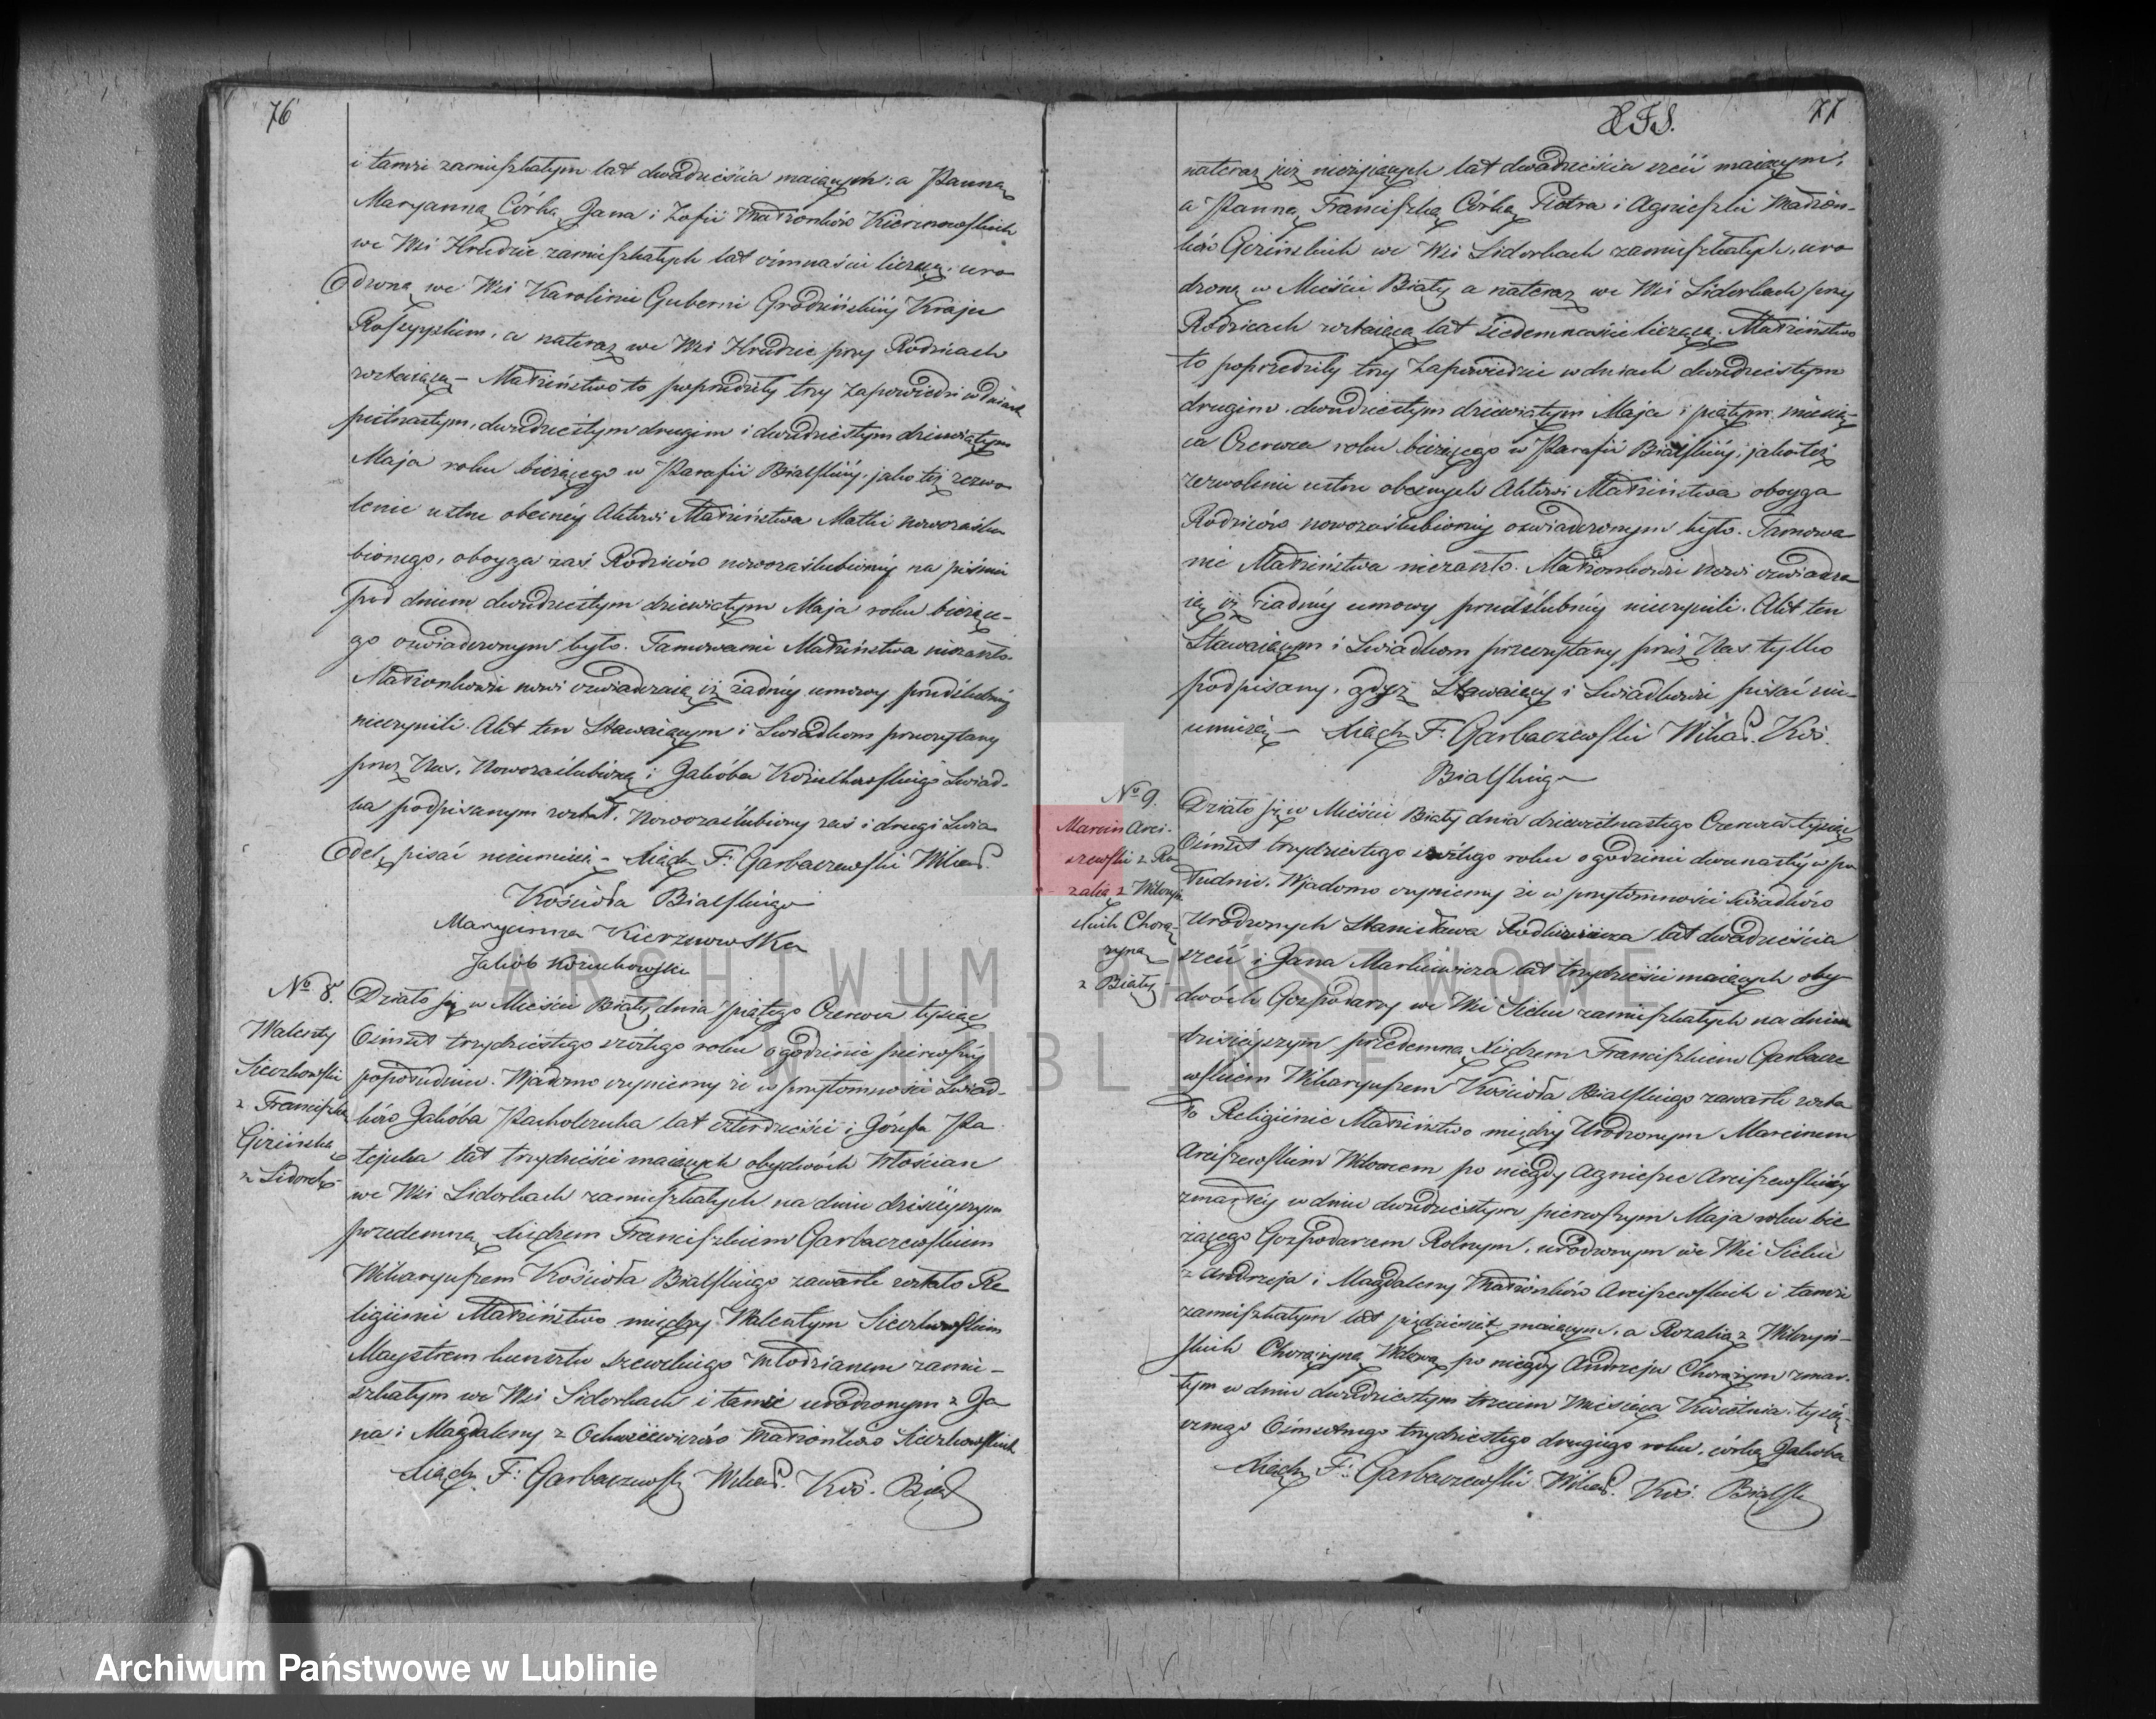 76
i tamże zamieszkałym lat dwadzieścia maiącym; a Panną
Maryanną Córką Jana i Zofii Małżonków Kierznowskich
we Wsi Hrudzie zamieszkałych lat ośmnaście liczącą, uro
dzoną we Wsi Karolinie Gubernii Grodzieńskiéy Kraju
Rossyyskim, a nateraz we Wsi Hrudzie przy Rodzicach
zostaiącą – Małżeństwo to poprzedziły trzy Zapowiedzi w dniach
pietnastym, dwudziestym drugim i dwudziestym dziewiątym
Maja roku bieżącego w Parafii Bialskiéy, jako też zezwo
lenie ustne obecnéy Aktowi Małżeństwa Matki nowozaślu
bionego, oboyga zaś Rodziców nowozaślubionéy na piśmie
pod dniem dwudziestym dziewiątym Maja roku bieżące-
go oświadczonym było. Tamowanie Małżeństwa niezaszło.
Małżonkowie nowi oświadczaią iż żadnéy umowy przedślubnéy
nieczynili. Akt ten Stawaiącym i Swiadkom przeczytany
przez Nas, Nowozaślubioną i Jakóba Koziuchowskiego Swiad-
ka podpisanym został, Nowozaślubiony zaś i drugi Swia
dek pisać nieumieią – Xiądz F: Garbaczewski Wikar.
Kościoła Bialskiego
Maryanna Kierznowska
Jakób Koziuchowski
No 8.
Walenty
Sieczkowski
z Franciszką
Gizińską
z Sidorek
Działo się w Mieście Biały dnia piątego Czerwca tysiąc
Ośmset trzydziestego szóstego roku o godzinie pierwszéy
popołudniu. Wiadomo czyniemy że w przytomności Swiad-
ków Jakóba Pacholczuka lat czterdzieści i Józefa Pa
tejuka lat trzydzieści maiących obydwóch Włościan
we Wsi Sidorkach zamieszkałych na dniu dzisieyszym
przedemną Xiędzem Franciszkiem Garbaczewskiem
Wikaryuszem Kościoła Bialskiego zawarte zostało Re
ligiine Małżeństwo między Walentym Sieczkowskim
Maystrem kunsztu szewckiego Młodzianem zamie-
szkałym we Wsi Sidorkach i tamże urodzonym z Ja
na i Magdaleny z Małżonków Sieczkowskich
Xiądz F: Garbaczewski Wikar. Koś. Bial
77
nateraz już nieżyiących lat dwadzieścia sześć maiącym;
a Panną Franciszką Córką Piotra i Agnieszki Małżon-
ków Gizińskich we Wsi Sidorkach zamieszkałych, uro
dzoną w Mieście Biały a nateraz we Wsi Sidorkach przy
Rodzicach zostaiącą lat siedemnaście liczącą. Małżeństwo
to poprzedziły trzy Zapowiedzie w dniach dwudziestym
drugim, dwudziestym dziewiątym Maja i piątym miesią-
ca Czerwca roku bieżącego w Parafii Bialskiéy, jako też
zezwolenie ustne obecnych Aktowi Małżeństwa oboyga
Rodziców nowozaślubionéy oświadczonym było. Tamowa
nie Małżeństwa niezaszło. Małżonkowie nowi oświadcza
ią iż żadnéy umowy przedślubnéy nieczynili. Akt ten
Stawaiącym i Swiadkom przeczytany przez Nas tylko
podpisany, gdyż Stawaiący i Swiadkowie pisać nie-
umieią – Xiądz F. Garbaczewski Wikar. Koś.
Bialskiego
No 9.
Marcin Arci-
szewski z Ro
zalią z Wilczyń
skich Chorą-
żyną
z Biały
Działo się w Mieście Biały dnia dziewiętnastego Czerwca tysiąc
Ośmset trzydziestego szóstego roku o godzinie dwunastéy w po
łudnie. Wiadomo czyniemy że w przytomności Swiadków
Urodzonych Stanisława lat dwadzieścia
sześć i Jana Markiewicza lat trzydzieści maiących oby
dwóch Gospodarzy we Wsi Sielcu zamieszkałych na dniu
dzisieyszym przedemną Xiędzem Franciszkiem Garbacze
wskiem Wikaryuszem Kościoła Bialskiego zawarte zosta
ło Religiinie Małżeństwo między Urodzonym Marcinem
Arciszewskim Wdowcem po niegdy Agnieszce Arciszewskiéy
zmarłéy w dniu dwudziestym pierwszym Maja roku bie
żącego Gospodarzem Rolnym, urodzonym we Wsi Sielcu
z Andrzeja i Magdaleny Małżonków Arciszewskich i tamże
zamieszkałym lat pięćdziesiąt maiącym, a Rozalią z Wilczyń-
skich Chorążyną Wdową po niegdy Andrzeju Chorążym zmar-
łym w dniu dwudziestym trzecim Miesiąca Kwietnia tysią-
cznego Ośmsetnego trzydziestego drugiego roku, córką Jakóba
Xiądz F: Garbaczewski Wikar. Koś: Bialski
ARCHIWUM PAŃSTWOWE
W LUBLINIE
Archiwum Państwowe w Lublinie